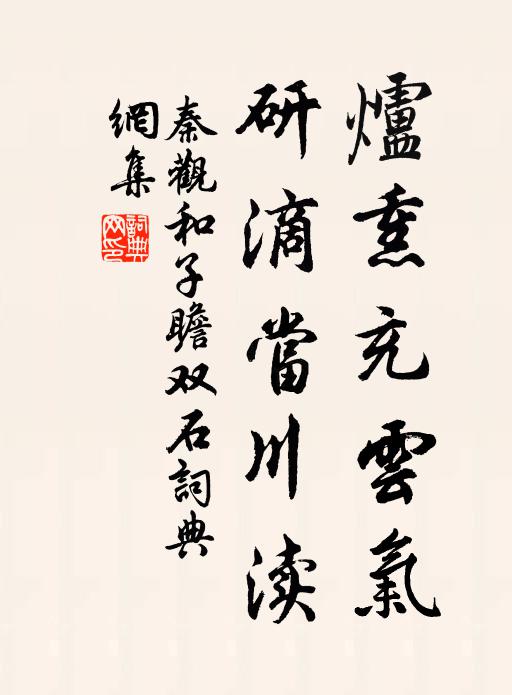 爐熏充雲氣
研滴當川渎
秦觀和子瞻双石詞典
網集
詞典網印